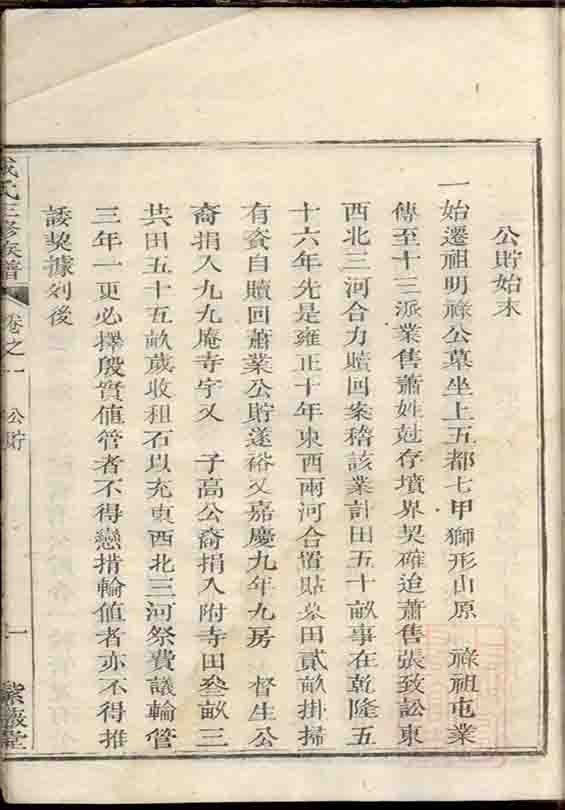 公貯始末
一始遷祖明祿公墓坐上五都七甲獅形山原 祿祖屯業
傳至十三派業售蕭姓尅存墳界契確迨蕭售張致訟東
西北三河合力贖回案稽該業計田五十畝事在乾隆五
十六年先是雍正十年東西兩河合置貼墓田貳畝掛掃
有資自贖回蕭業公貯遂裕又嘉慶九年九房 督生公
裔捐入九九庵寺宇又 子高公裔捐入附寺田叁畝三
共田五十五畝歲收租石以充東西北三河祭費議輪管
三年一更必擇殷實值管者不得戀掯輪值者亦不得推
諉契據列後
氏三修族譜
卷之一 公貯
一
紫蔭堂